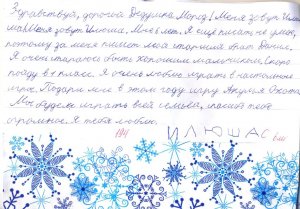 Здравствуй, дорогой Дедушка Мороз! Меня зовут Илья
меня зовут Илюша. Мне 6 лет. Я ещё писать не умею,
потому за меня пишет мой старший брат Данис.
Я очень стараюсь быть хорошим мальчиком. Скоро
пойду в 1 класс. Я очень люблю играть в настольные
игры. Подари мне в этом году игру Акулья Охота.
Мы будем играть всей семьёй. Спасибо тебе
огромное. Я тебя люблю.
ИЛЮША С
6 лет